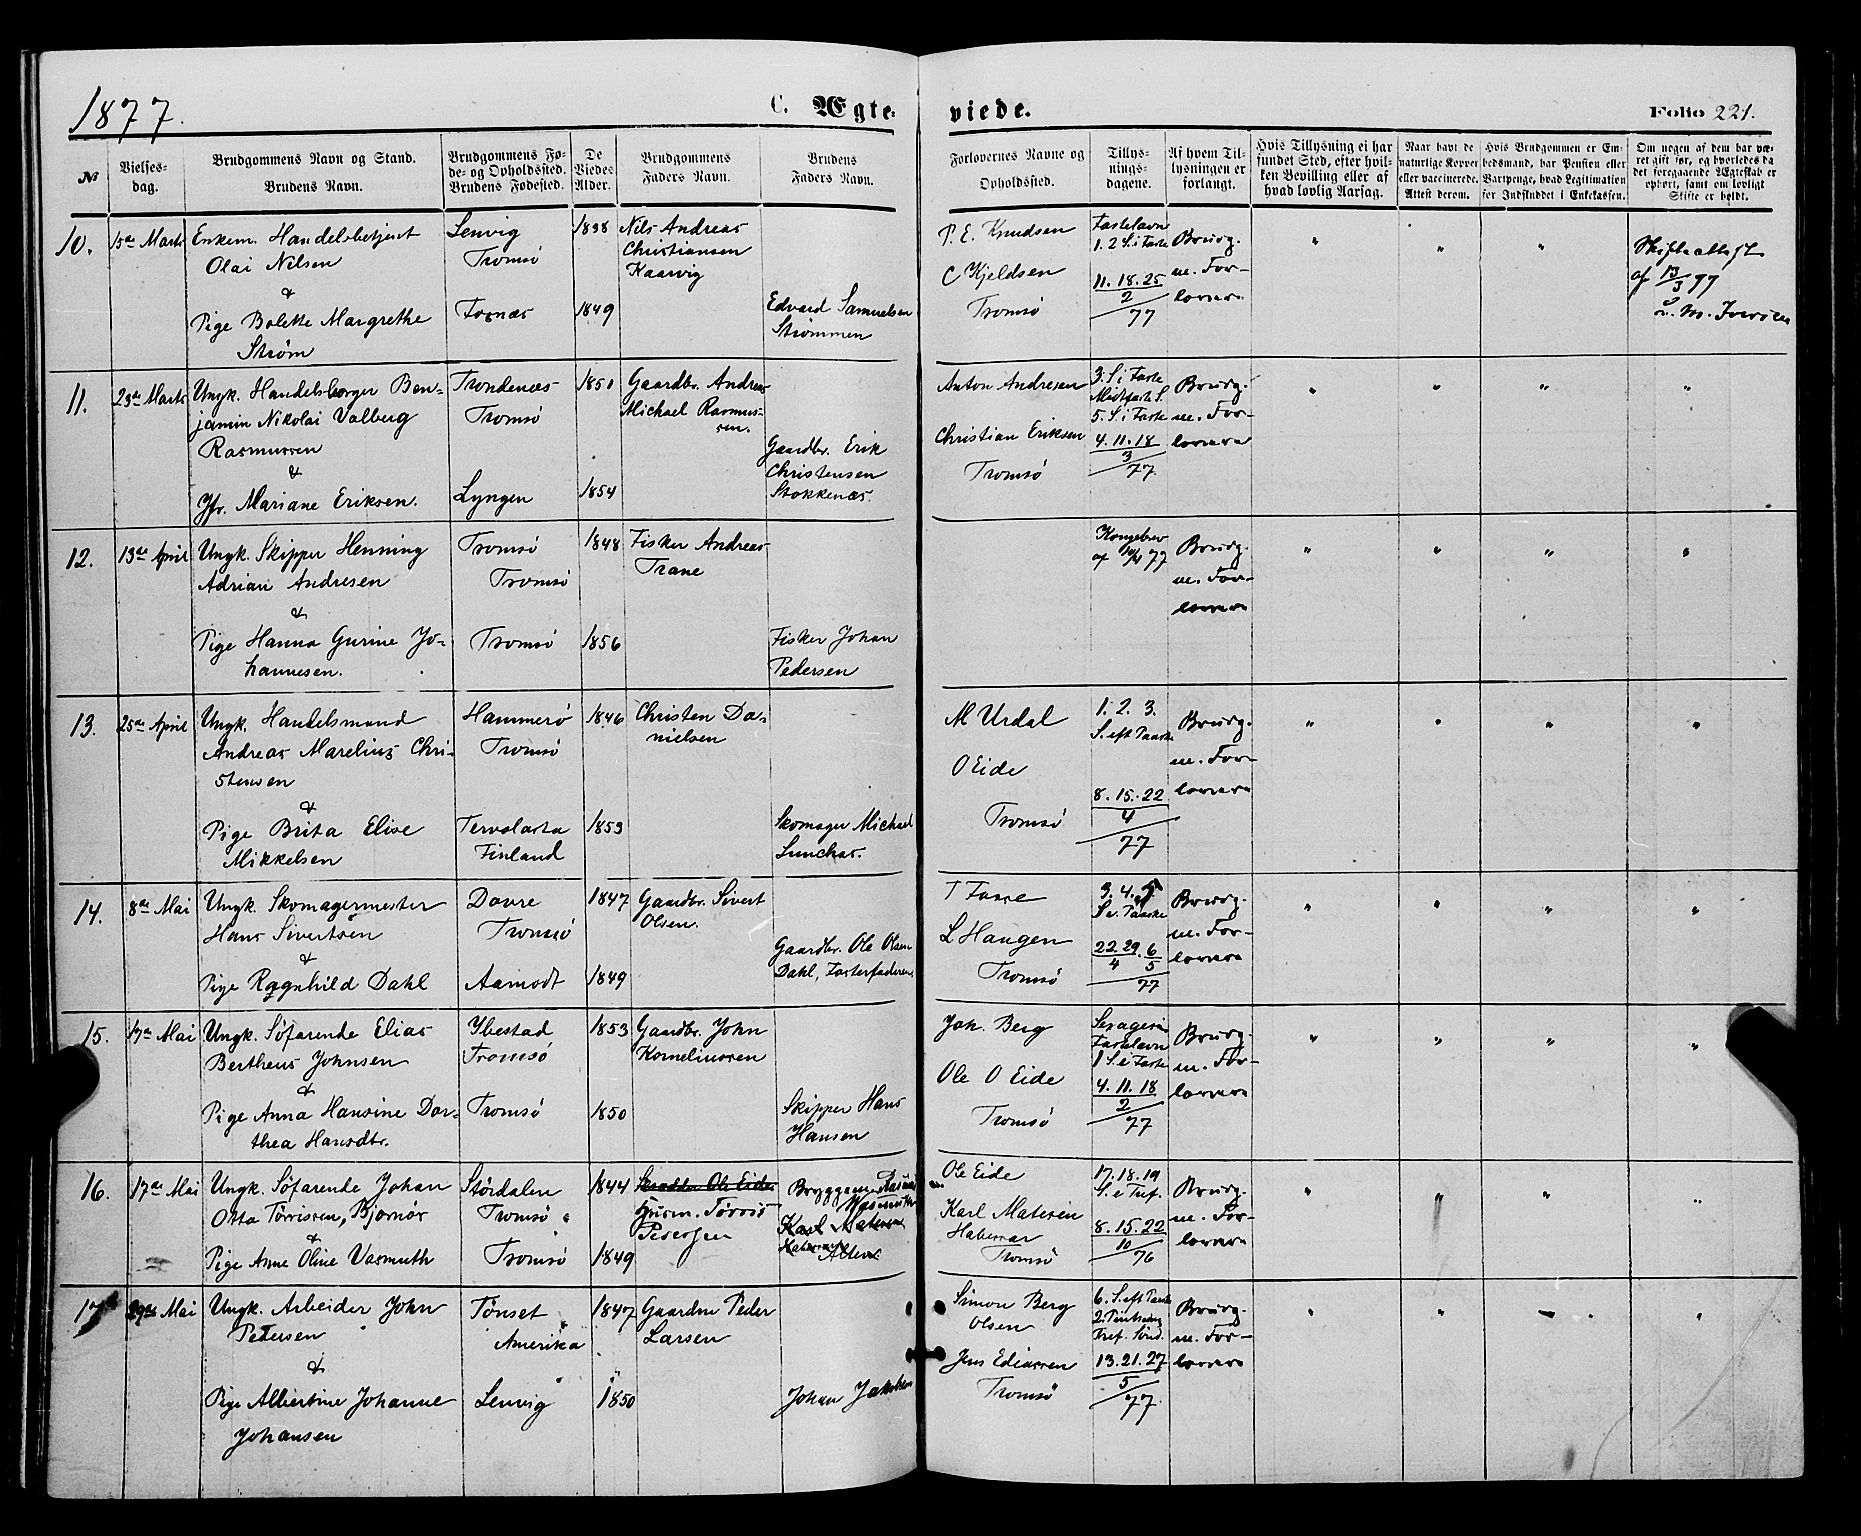 1877.
C. Ægte-
viede.
Folio 221.
No
Vielses-
dag.
Brudgommens Navn og Stand.
Brudens Navn.
Brudgommens Fø-
de- og Opholdssted.
Brudens Fødested.
De
Viedes
Alder.
Brudgommens
Faders Navn.
Brudens
Faders Navn.
Forlovernes Navne og
Opholdssted.
Tillys-
nings-
dagene.
Af hvem Til-
lysningen er
forlangt.
Hvis Tillysning ei har
fundet Sted, efter hvil-
ken Bevilling eller af
hvad lovlig Aarsag.
Naar havt de
naturlige Kopper
eller vaccinerede.
Attest derom.
Hvis Brudgommen er Em-
bedsmand, har Pension eller
Vartpenge, hvad Legitimation
for Indskuddet i Enkekassen.
Om nogen af dem har væ-
ret gift før, og hvorledes da
det foregaaende Ægteskab er
ophørt, samt om lovligt
Skifte er holdt.
10.
15de Marts
Enkem. Handelsbetjent
Olai Nilsen
&
Pige Bolette Margrethe
Strøm
Lenvig
Tromsø
Tosnæs
1838
1849
Nils Andreas
Christiansen
Kaarvig
Edvard Samuelsen
Strømmen
P. E. Knudsen
C Kjeldsen
Tromsø
Fastelavn
1. 2 S. i Faste
11. 18. 25
2
77
Brudg.
m. For-
lovere
"
"
"
Skifteattest
af 13/3 77
11.
23de Marts
Ungk. Handelsborger Ben-
jamin Nikolai Valberg
Rasmussen
&
Jfr. Mariane Eriksen.
Trondenæs
Tromsø
Lyngen
1851
1854
Gaardbr. Andreas
Michael Rasmus-
sen.
Gaardbr. Erik
Christensen
Stokkenæs.
Anton Andresen
Christian Eriksen
Tromsø
3. S i Faste
Midtfaste S.
5. S. i Faste
4. 11. 18
3
77.
Brudg.
m. For-
lovere
"
"
"
"
12.
13de April
Ungk. Skipper Henning
Adrian Andresen
&
Pige Hanna Gurine Jo-
hannesen.
Tromsø
Tromsø
Tromsø
1848
1856
Fisker Andreas
Trane
Fisker Johan
Pedersen
Kongebrev
af 77
Brudg.
m. For-
lovere
"
"
"
"
13.
25de April
Ungk. Handelsmand
Andreas Marelius Chri-
stensen
&
Pige Brita Elise
Mikkelsen
Hammerø
Tromsø
Tervolarta
Finland
1846
1853
Christen Da-
nielsen
Skomager Michael
M Urdal
O Eide
Tromsø
1. 2. 3.
S. eft Paaske
8. 15. 22
4
77
Brudg.
m. For-
lovere
"
"
"
"
14.
8de Mai
Ungk. Skomagermester
Hans Sivertsen
&
Pige Ragnhild Dahl
Dovre
Tromsø
Aamodt
1847
1849
Gaardbr. Sivert
Olsen.
Gaardbr. Ole Olsen
Dahl, Fosterfaderen.
L Haugen
Tromsø
3. 4. 5
S e. Paaske
22. 29. 6
4 5
77
Brudg.
m. For-
lovere
"
"
"
"
15.
17de Mai
Ungk. Søfarende Elias
Bertheus Johnsen
&
Pige Anna Hansine Dor-
thea Hansdtr.
Ybestad
Tromsø
Tromsø
1853
1850
Gaardbr. John
Korneliussen
Skipper Hans
Hansen
Joh. Berg
Ole O Eide
Tromsø
Fastelavn
1 S. i Faste
4. 11. 18
2
77
Brudg.
m. For-
lovere
"
"
"
"
16.
17de Mai
Ungk. Søfarende Johan
Otto Tørrissen, Bjørnør
&
Pige Anne Oline Vasmuth
Størdalen
Tromsø
Tromsø
1844
1849
Skrædder Ole Eide
Husm. Tørris
Pedersen
Karl Matesen
Ole Eide
Karl Matesen
Tromsø
17. 18. 19
S. e Tref.
8. 15. 22
10
76
Brudg.
m. For-
lovere
"
"
"
"
17
29de Mai
Ungk. Arbeider John
Petersen
&
Pige Albertine Johanne
Johansen
Tønset
Amerika
Lenvig
1847
1850
Gaardm Peder
Larsen
Johan Jakobsen
Simon Berg
Olsen
Jens Ediassen
Tromsø
6. S. eft Paaske
2. Pintsedag
Tref. Sønd.
13. 21. 27
5
77.
Brudg.
m. For-
lovere
"
"
"
"